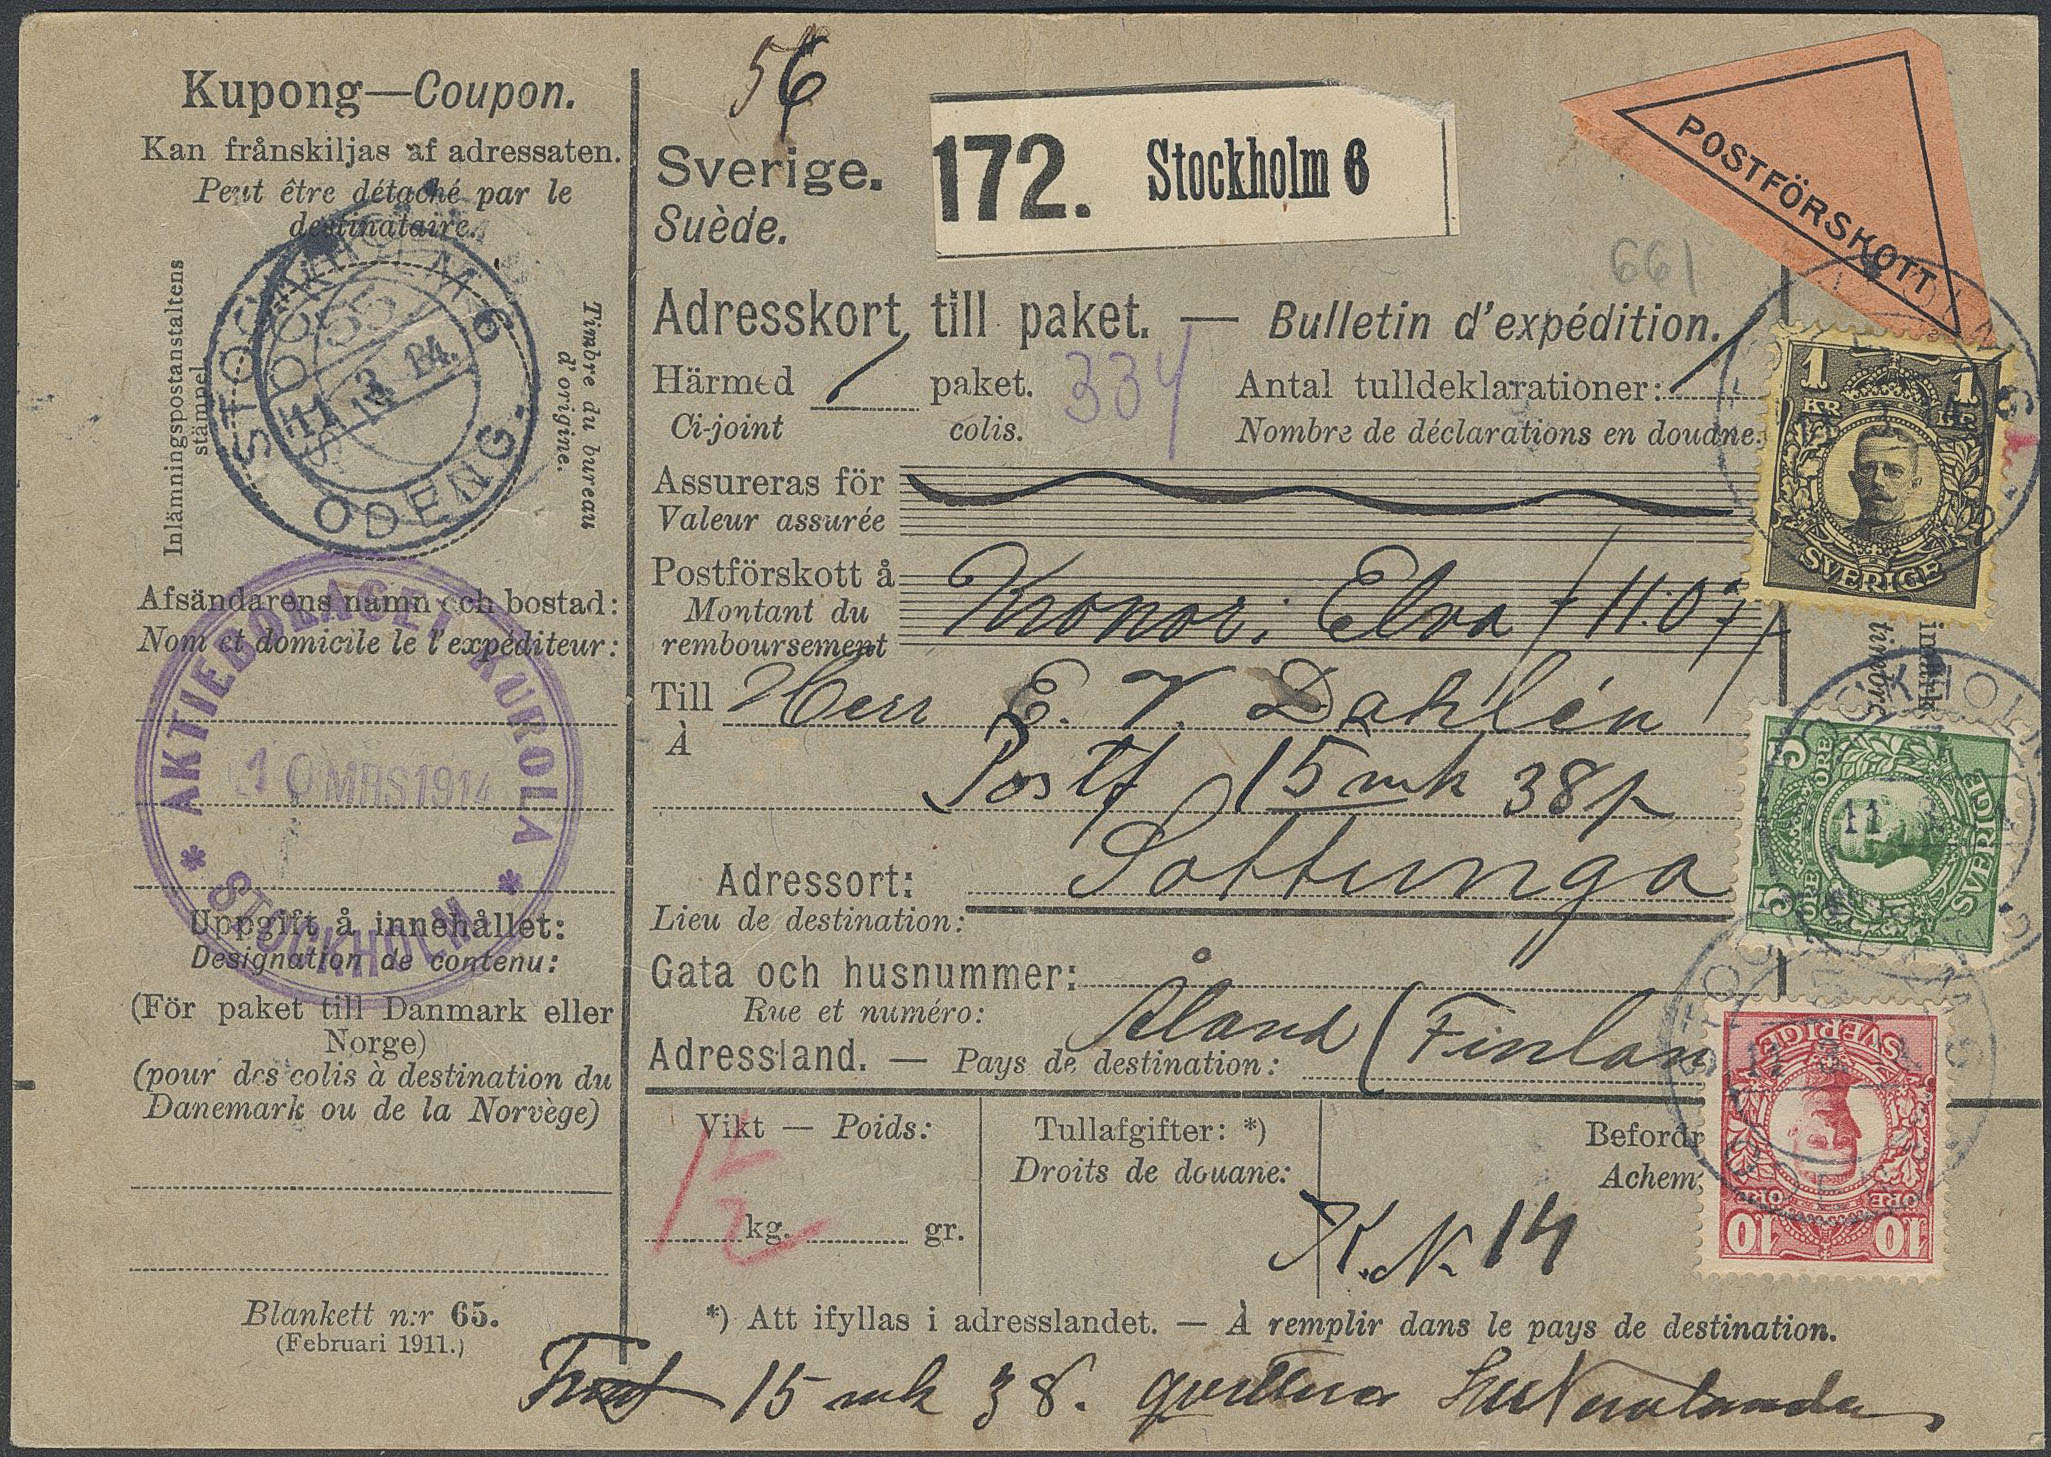 Kupong—Coupon.
Kan frånskiljas af adressaten.
Peut être détaché par le
destinataire.
Inlämningspostanstaltens
stämpel
Timbre du bureau
d'origine.
STOCKHOLM-6
ODENG.
11 3 14
Afsändarens namn och bostad:
Nom et domicile le l'expéditeur:
* AKTIEBOLAGET KUROLA *
10 MRS 1914
STOCKHOLM
Uppgift å innehållet:
Designation de contenu:
(För paket till Danmark eller
Norge)
(pour des colis à destination du
Danemark ou de la Norvège)
Blankett n:r 65.
(Februari 1911.)
56
Sverige.
Suède.
172. Stockholm 6
POSTFÖRSKOTT
661
Adresskort till paket. — Bulletin d'expédition.
Härmed 1 paket. 334 Antal tulldeklarationer: 1
Ci-joint colis. Nombre de déclarations en douane.
Assureras för
Valeur assurée
Postförskott å Kronor: Elva / 11:07
Montant du
remboursement
Till Herr E. V. Dahlén
À
Postf 15 mk 38 p
Adressort: Sottunga
Lieu de destination:
Gata och husnummer:
Rue et numéro:
Åland (Finlan
Adressland. — Pays de destination:
Vikt — Poids: Tullafgifter: *) Befordr
Droits de douane: Achem
1½ kg. gr.
K. N. 14
*) Att ifyllas i adresslandet. — À remplir dans le pays de destination.
15 mk 38.
1 KR 1 KR
SVERIGE
timbre
5 ÖRE 5 ÖRE
SVERIGE
11 3
SVERIGE
10 ÖRE 10 ÖRE